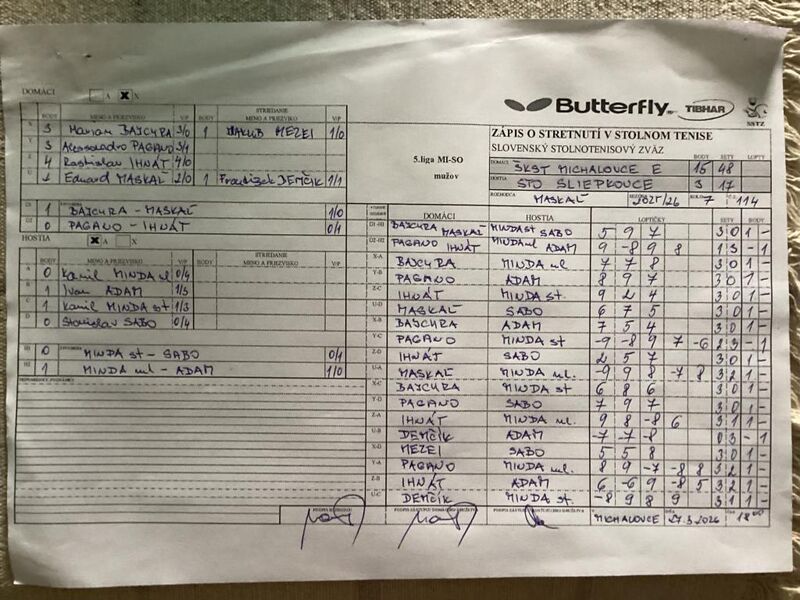 DOMÁCI A X X
Butterfly TIBHAR SSTZ
BODY MENO A PRIEZVISKO V/P BODY STRIEDANIE MENO A PRIEZVISKO V/P
X 3 Marian BAJCURA 3/0 1 JAKUB MEZEI 1/0
Y 3 Alessandro PAGANO 3/1
Z 4 Rastislav IHNÁT 4/0
U Eduard MASKAĽ 2/0 1 František DEMČÍK 1/1
D1 1 BAJCURA - MASKAĽ 1/0
D2 0 PAGANO - IHNÁT 0/1
5.liga MI-SO
mužov
ZÁPIS O STRETNUTÍ V STOLNOM TENISE
SLOVENSKÝ STOLNOTENISOVÝ ZVÄZ
BODY SETY LOPTY
DOMÁCI ŠKST MICHALOVCE E 15 48
HOSTIA STO SLIEPKOVCE 3 17
ROZHODCA MASKAĽ 2025/26 7 114
HOSTIA X A X
BODY MENO A PRIEZVISKO V/P BODY STRIEDANIE MENO A PRIEZVISKO V/P
A 0 Kamil MINDA ml 0/4
B 1 Ivan ADAM 1/3
C 1 Kamil MINDA st 1/3
D 0 Stanislav SABO 0/4
H1 0 MINDA st - SABO 0/1
H2 1 MINDA ml - ADAM 1/0
DOMÁCI HOSTIA LOPTIČKY SETY BODY
D1-H1 BAJCURA MASKAĽ MINDA st SABO 5 9 7 3 0 1 -
D2-H2 PAGANO IHNÁT MINDA ml ADAM 9 -8 9 8 1 3 - 1
X-A BAJCURA MINDA ml 7 7 8 3 0 1 -
Y-B PAGANO ADAM 8 9 7 3 0 1 -
Z-C IHNÁT MINDA st. 9 2 4 3 0 1 -
U-D MASKAĽ SABO 6 7 5 3 0 1 -
X-B BAJCURA ADAM 7 5 4 3 0 1 -
Y-C PAGANO MINDA st -9 -8 9 7 -6 2 3 - 1
Z-D IHNÁT SABO 2 5 7 3 0 1 -
U-A MASKAĽ MINDA ml. -9 9 8 -7 8 3 2 1 -
X-C BAJCURA MINDA st 6 8 6 3 0 1 -
Y-D PAGANO SABO 7 9 7 3 0 1 -
Z-A IHNÁT MINDA ml. 9 8 -8 6 3 1 1 -
U-B DEMČÍK ADAM -7 -7 -8 0 3 - 1
X-D MEZEI SABO 5 5 8 3 0 1 -
Y-A PAGANO MINDA ml. 8 9 -7 -8 8 3 2 1 -
Z-B IHNÁT ADAM 6 -6 9 -8 5 3 2 1 -
U-C DEMČÍK MINDA st. -8 9 8 9 3 1 1 -
MICHALOVCE 27.3.2026 18 00